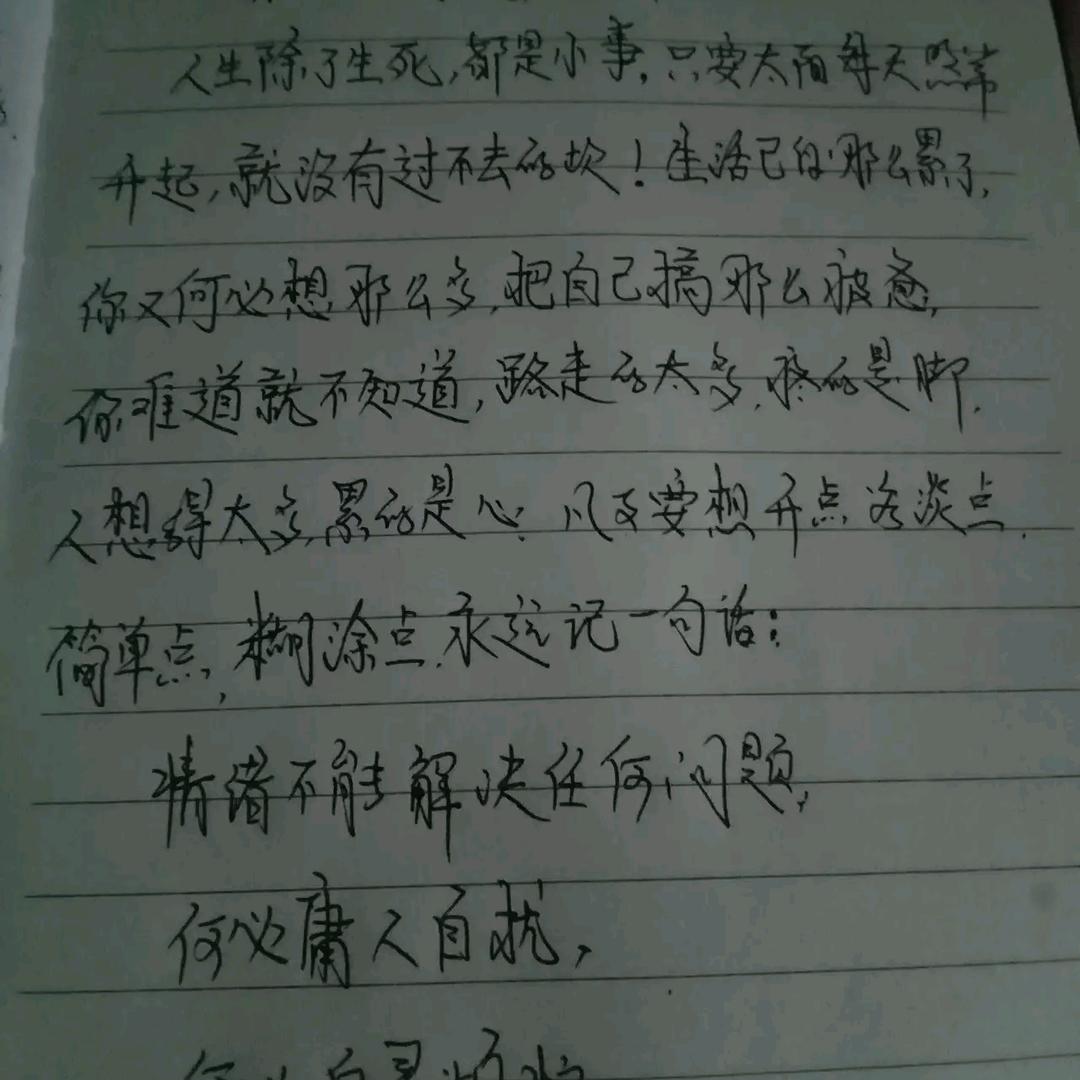 人生除了生死,都是小事,只要太阳每天照常
升起,就没有过不去的坎!生活已经那么累了,
你又何必想那么多,把自己搞那么疲惫,
你难道就不知道,路走的太多,疼的是脚,
人想得太多,累的是心,凡事要想开点看淡点,
简单点,糊涂点,永远记一句话:
情绪不能解决任何问题,
何必庸人自扰,
何必自寻烦恼